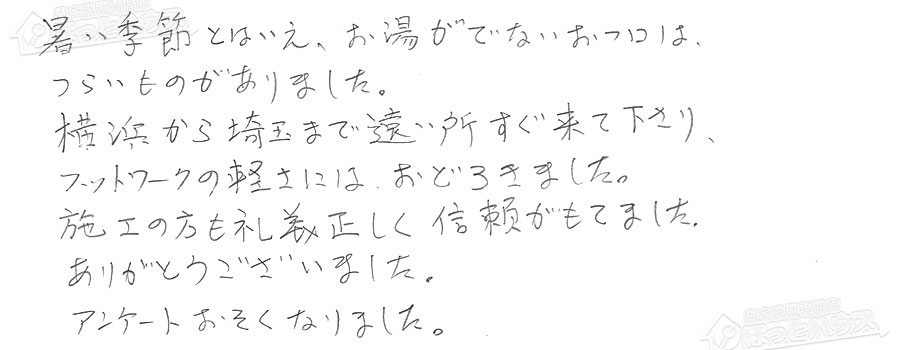 暑い季節とはいえ、お湯がでないおフロは、
つらいものがありました。
横浜から埼玉まで遠い所すぐ来て下さり、
フットワークの軽さには、おどろきました。
施工の方も礼義正しく信頼がもてました。
ありがとうございました。
アンケートおそくなりました。
ほっとハウス